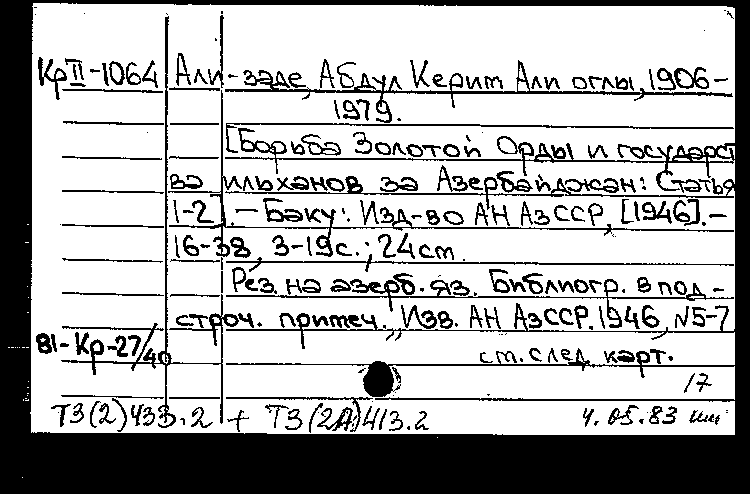 Кр II-1064 Али-заде, Абдул Керим Али оглы, 1906-
1979.
[Борьба Золотой Орды и государст
ва ильханов за Азербайджан: Статья
1-2]. - Баку: Изд-во АН АзССР, [1946]. -
16-38, 3-19 с.; 24 см.
Рез. на азерб. яз. Библиогр. в под-
строч. примеч. „Изв. АН АзССР. 1946, N5-7
81-Кр-27/40 см. след. карт.
17
Т3(2)433.2 + Т3(2А)413.2 4.05.83